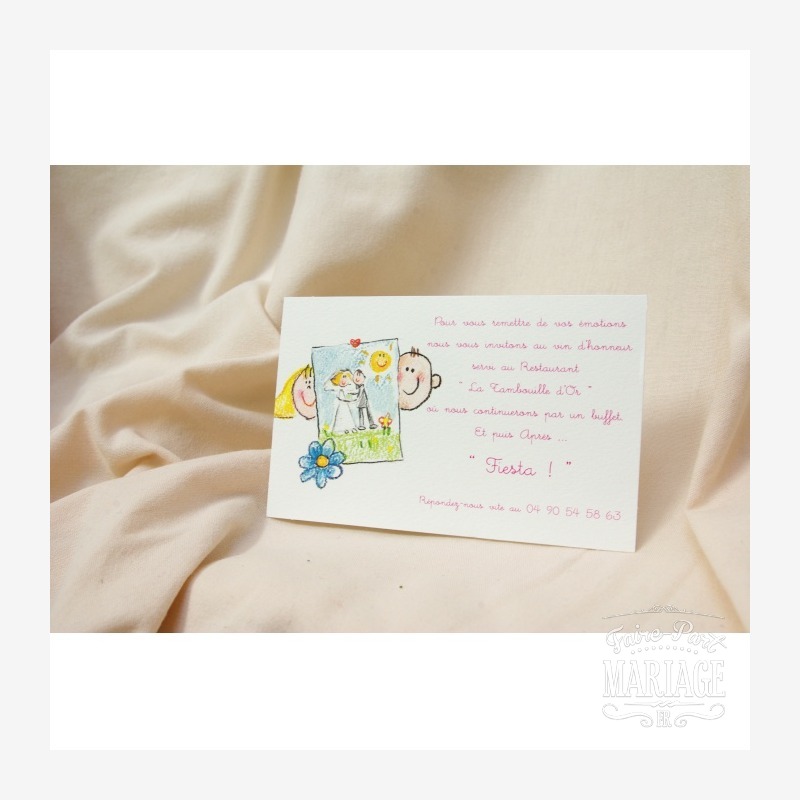 Pour vous remettre de vos émotions
nous vous invitons au vin d'honneur
servi au Restaurant
" La Tambouille d'Or "
où nous continuerons par un buffet.
Et puis Après ...
" Fiesta ! "
Répondez-nous vite au 04 90 54 58 63
Faire-Part
MARIAGE
.FR.